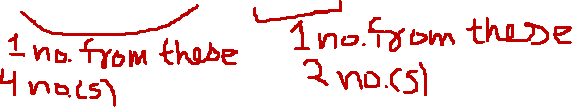 1 no. from these
4 no.(s)
1 no. from these
2 no.(s)